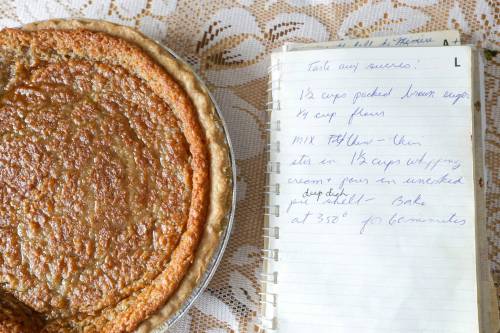 L
Tarte aux sucres!
1½ cups packed brown sugar
¼ cup flour
MIX together – then
stir in 1½ cups whipping
cream + pour in uncooked
deep dish
pie shell – Bake
at 350° for 60 minutes